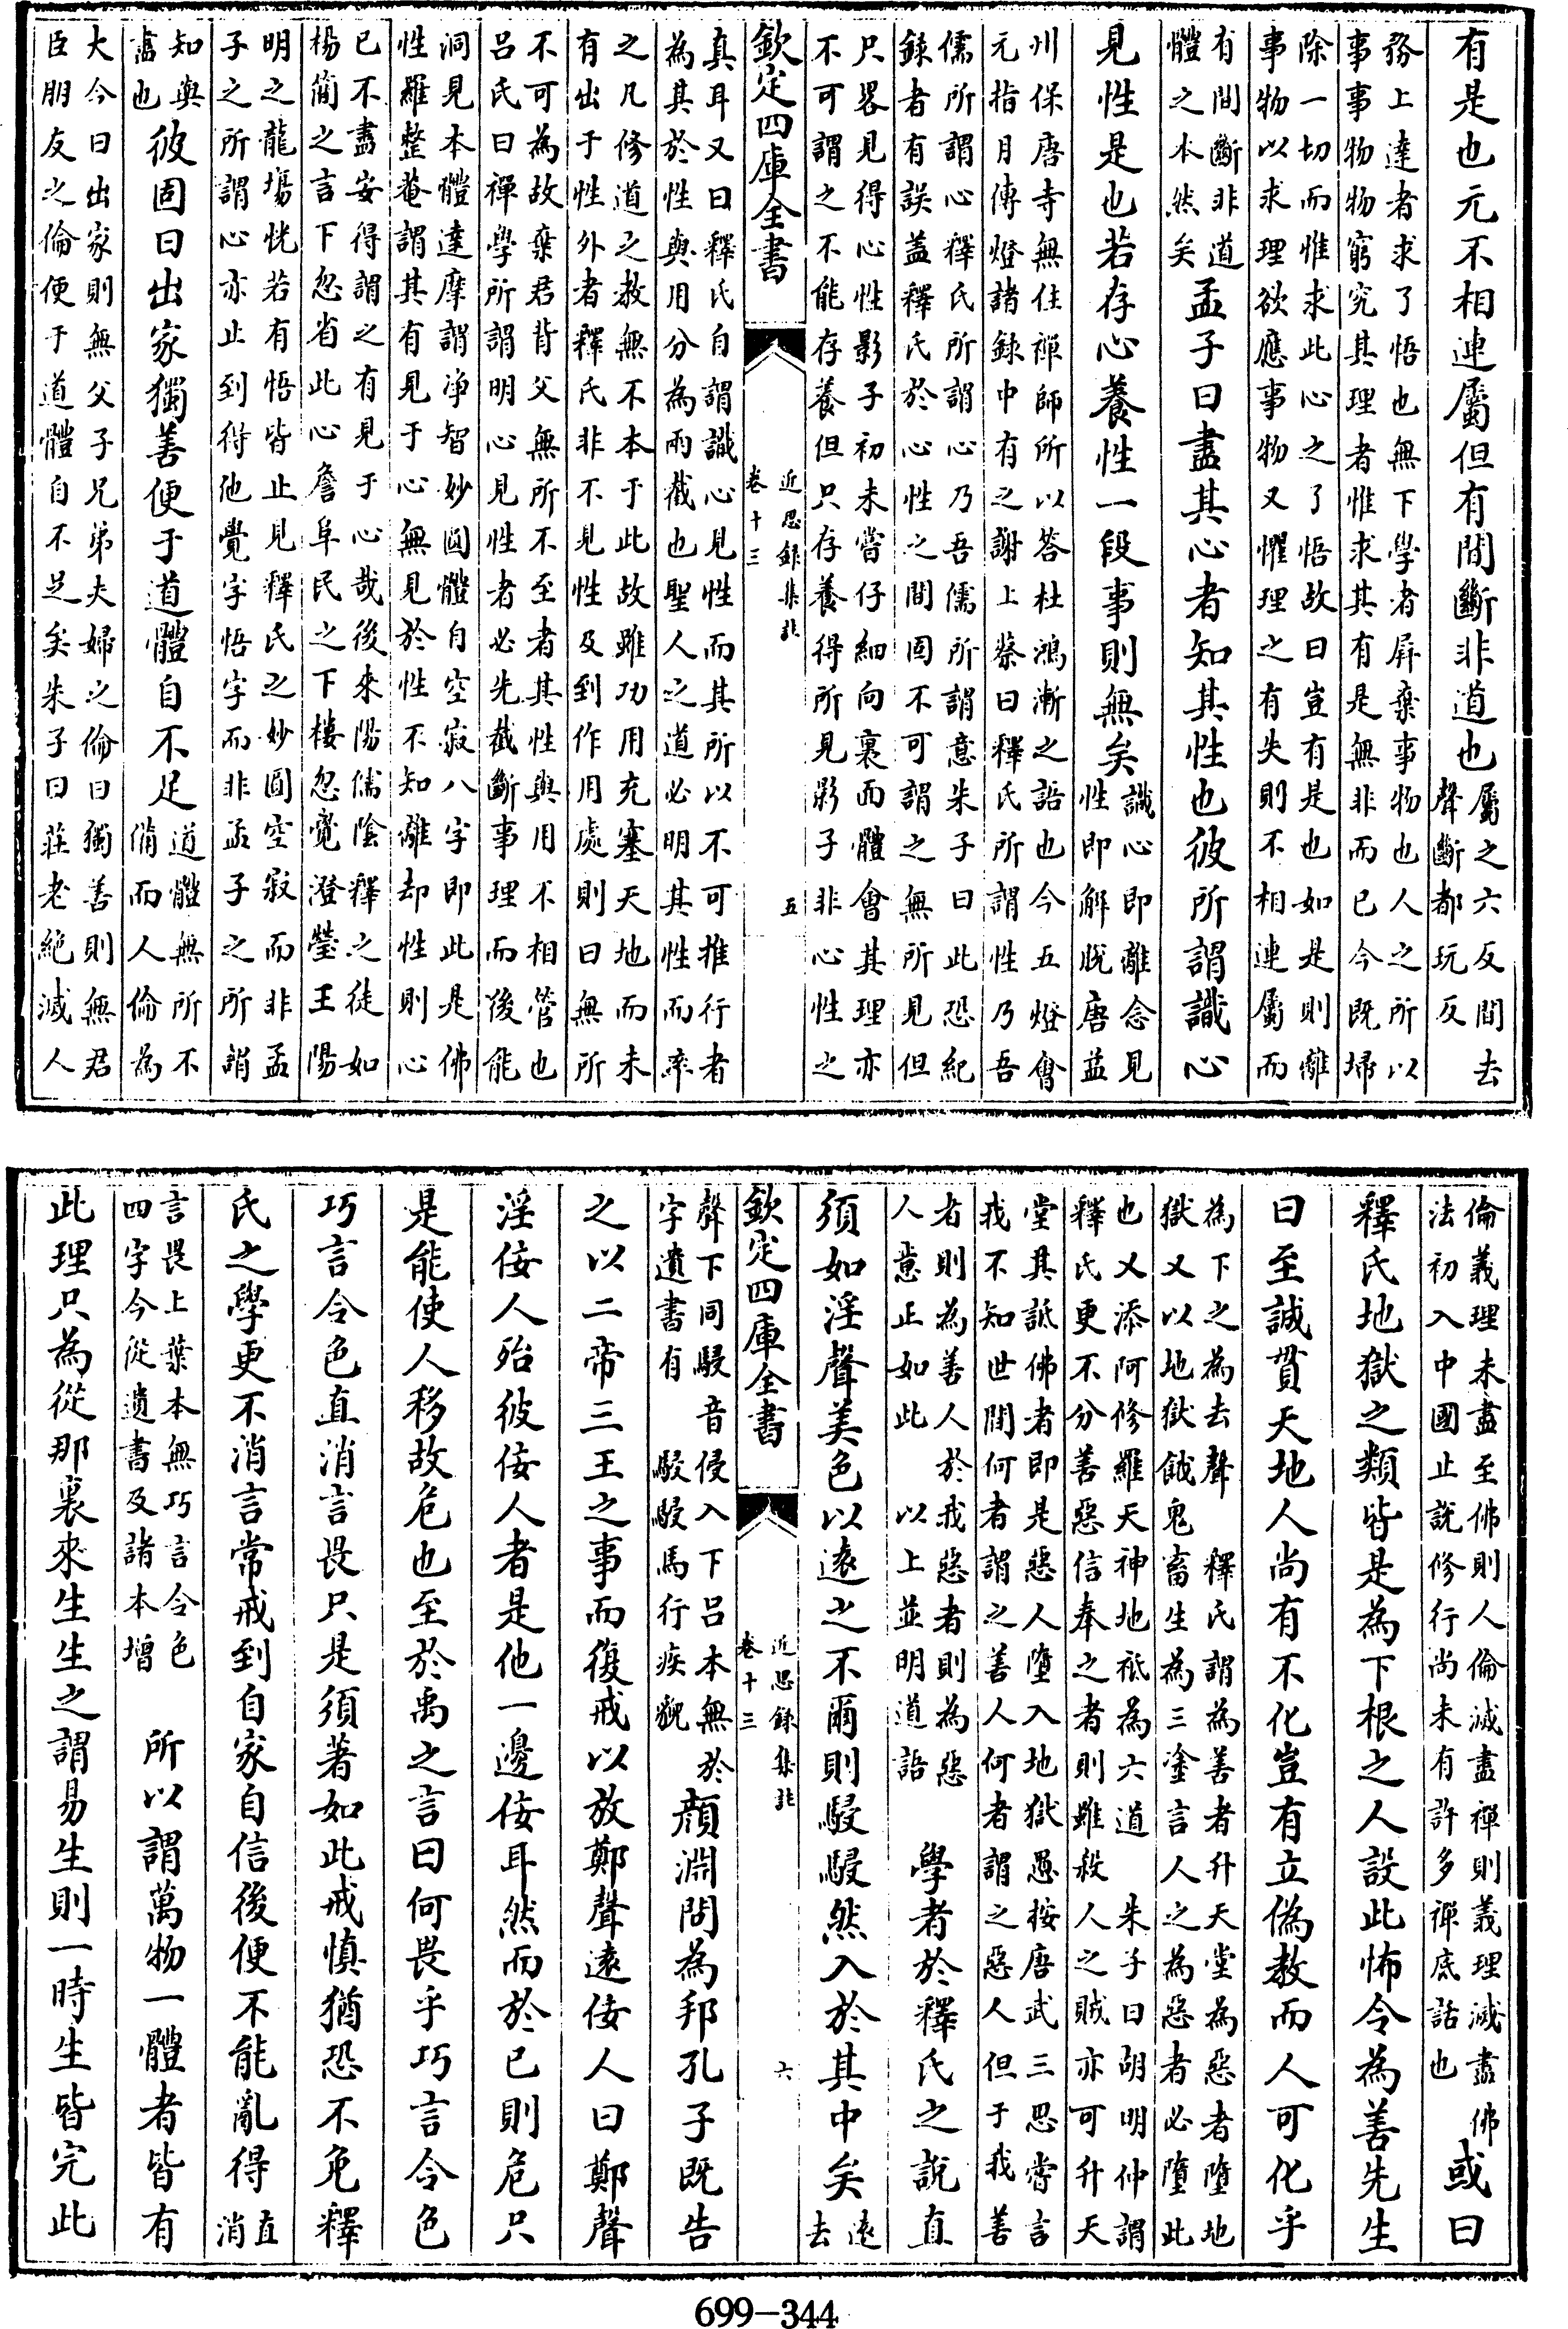 有是也元不相連屬但有間斷非道也屬之六反間去
聲斷都玩反
務上達者求了悟也無下學者屏棄事物也人之所以
事事物物窮究其理者惟求其有是無非而已今既埽
除一切而惟求此心之了悟故曰豈有是也如是則離
事物以求理欲應事物又懼理之有失則不相連屬而
有間斷非道
體之本然矣孟子曰盡其心者知其性也彼所謂識心
見性是也若存心養性一段事則無矣識心即離念見
性即解脫唐益
州保唐寺無住禪師所以答杜鴻漸之語也今五燈會
元指月傳燈諸錄中有之謝上蔡曰釋氏所謂性乃吾
儒所謂心釋氏所謂心乃吾儒所謂意朱子曰此恐紀
錄者有誤蓋釋氏於心性之間固不可謂之無所見但
只畧見得心性影子初未嘗仔細向裏面體會其理亦
不可謂之不能存養但只存養得所見影子非心性之
欽定四庫全書
近思錄集註
卷十三
五
真耳又曰釋氏自謂識心見性而其所以不可推行者
為其於性與用分為兩截也聖人之道必明其性而率
之凡修道之教無不本于此故雖功用充塞天地而未
有出于性外者釋氏非不見性及到作用處則曰無所
不可為故棄君背父無所不至者其性與用不相管也
呂氏曰禪學所謂明心見性者必先截斷事理而後能
洞見本體達摩謂淨智妙圓體自空寂八字即此是佛
性羅整菴謂其有見于心無見於性不知離却性則心
已不盡安得謂之有見于心哉後來陽儒陰釋之徒如
楊簡之言下忽省此心詹阜民之下樓忽覺澄瑩王陽
明之龍場恍若有悟皆止見釋氏之妙圓空寂而非孟
子之所謂心亦止到得他覺字悟字而非孟子之所謂
知與
舊也彼固曰出家獨善便于道體自不足道體無所不
備而人倫為
大今曰出家則無父子兄弟夫婦之倫曰獨善則無君
臣朋友之倫便于道體自不足矣朱子曰莊老絕滅人
倫義理未盡至佛則人倫滅盡禪則義理滅盡佛
法初入中國止說修行尚未有許多禪底話也或曰
釋氏地獄之類皆是為下根之人設此怖令為善先生
曰至誠貫天地人尚有不化豈有立偽教而人可化乎
為下之為去聲 釋氏謂為善者升天堂為惡者墮地
獄又以地獄餓鬼畜生為三塗言人之為惡者必墮此
也又添阿修羅天神地祗為六道 朱子曰胡明仲謂
釋氏更不分善惡信奉之者則雖殺人之賊亦可升天
堂其詆佛者即是惡人墮入地獄愚按唐武三思嘗言
我不知世間何者謂之善人何者謂之惡人但于我善
者則為善人於我惡者則為惡
人意正如此 以上並明道語 學者於釋氏之說直
須如淫聲美色以遠之不爾則駸駸然入於其中矣遠
去
欽定四庫全書
近思錄集註
卷十三
六
聲下同駸音侵入下呂本無於
字遺書有 駸駸馬行疾貌 顔淵問為邦孔子既告
之以二帝三王之事而復戒以放鄭聲遠佞人曰鄭聲
淫佞人殆彼佞人者是他一邊佞耳然而於已則危只
是能使人移故危也至於禹之言曰何畏乎巧言令色
巧言令色直消言畏只是須著如此戒慎猶恐不免釋
氏之學更不消言常戒到自家自信後便不能亂得直
消
言畏上葉本無巧言令色
四字今從遺書及諸本增 所以謂萬物一體者皆有
此理只為從那裏來生生之謂易生則一時生皆完此
699-344